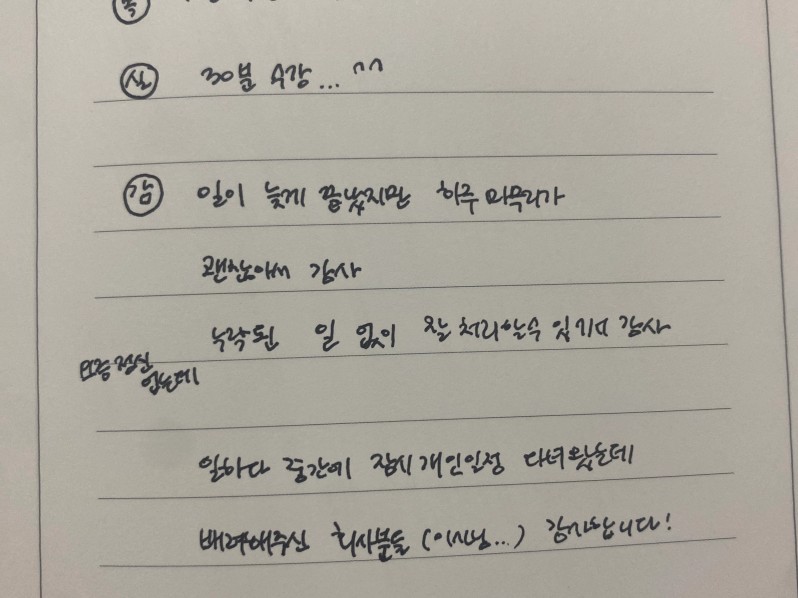 실 30분 수강... ^^
감 일이 늦게 끝났지만 하루 마무리가
괜찮아서 감사
누락된 일 없이 잘 처리할수 있기에 감사
요즘 정신
없는데
일하다 중간에 잠시 개인일정 다녀왔는데
배려해주신 회사분들 (이사님...) 감사합니다!